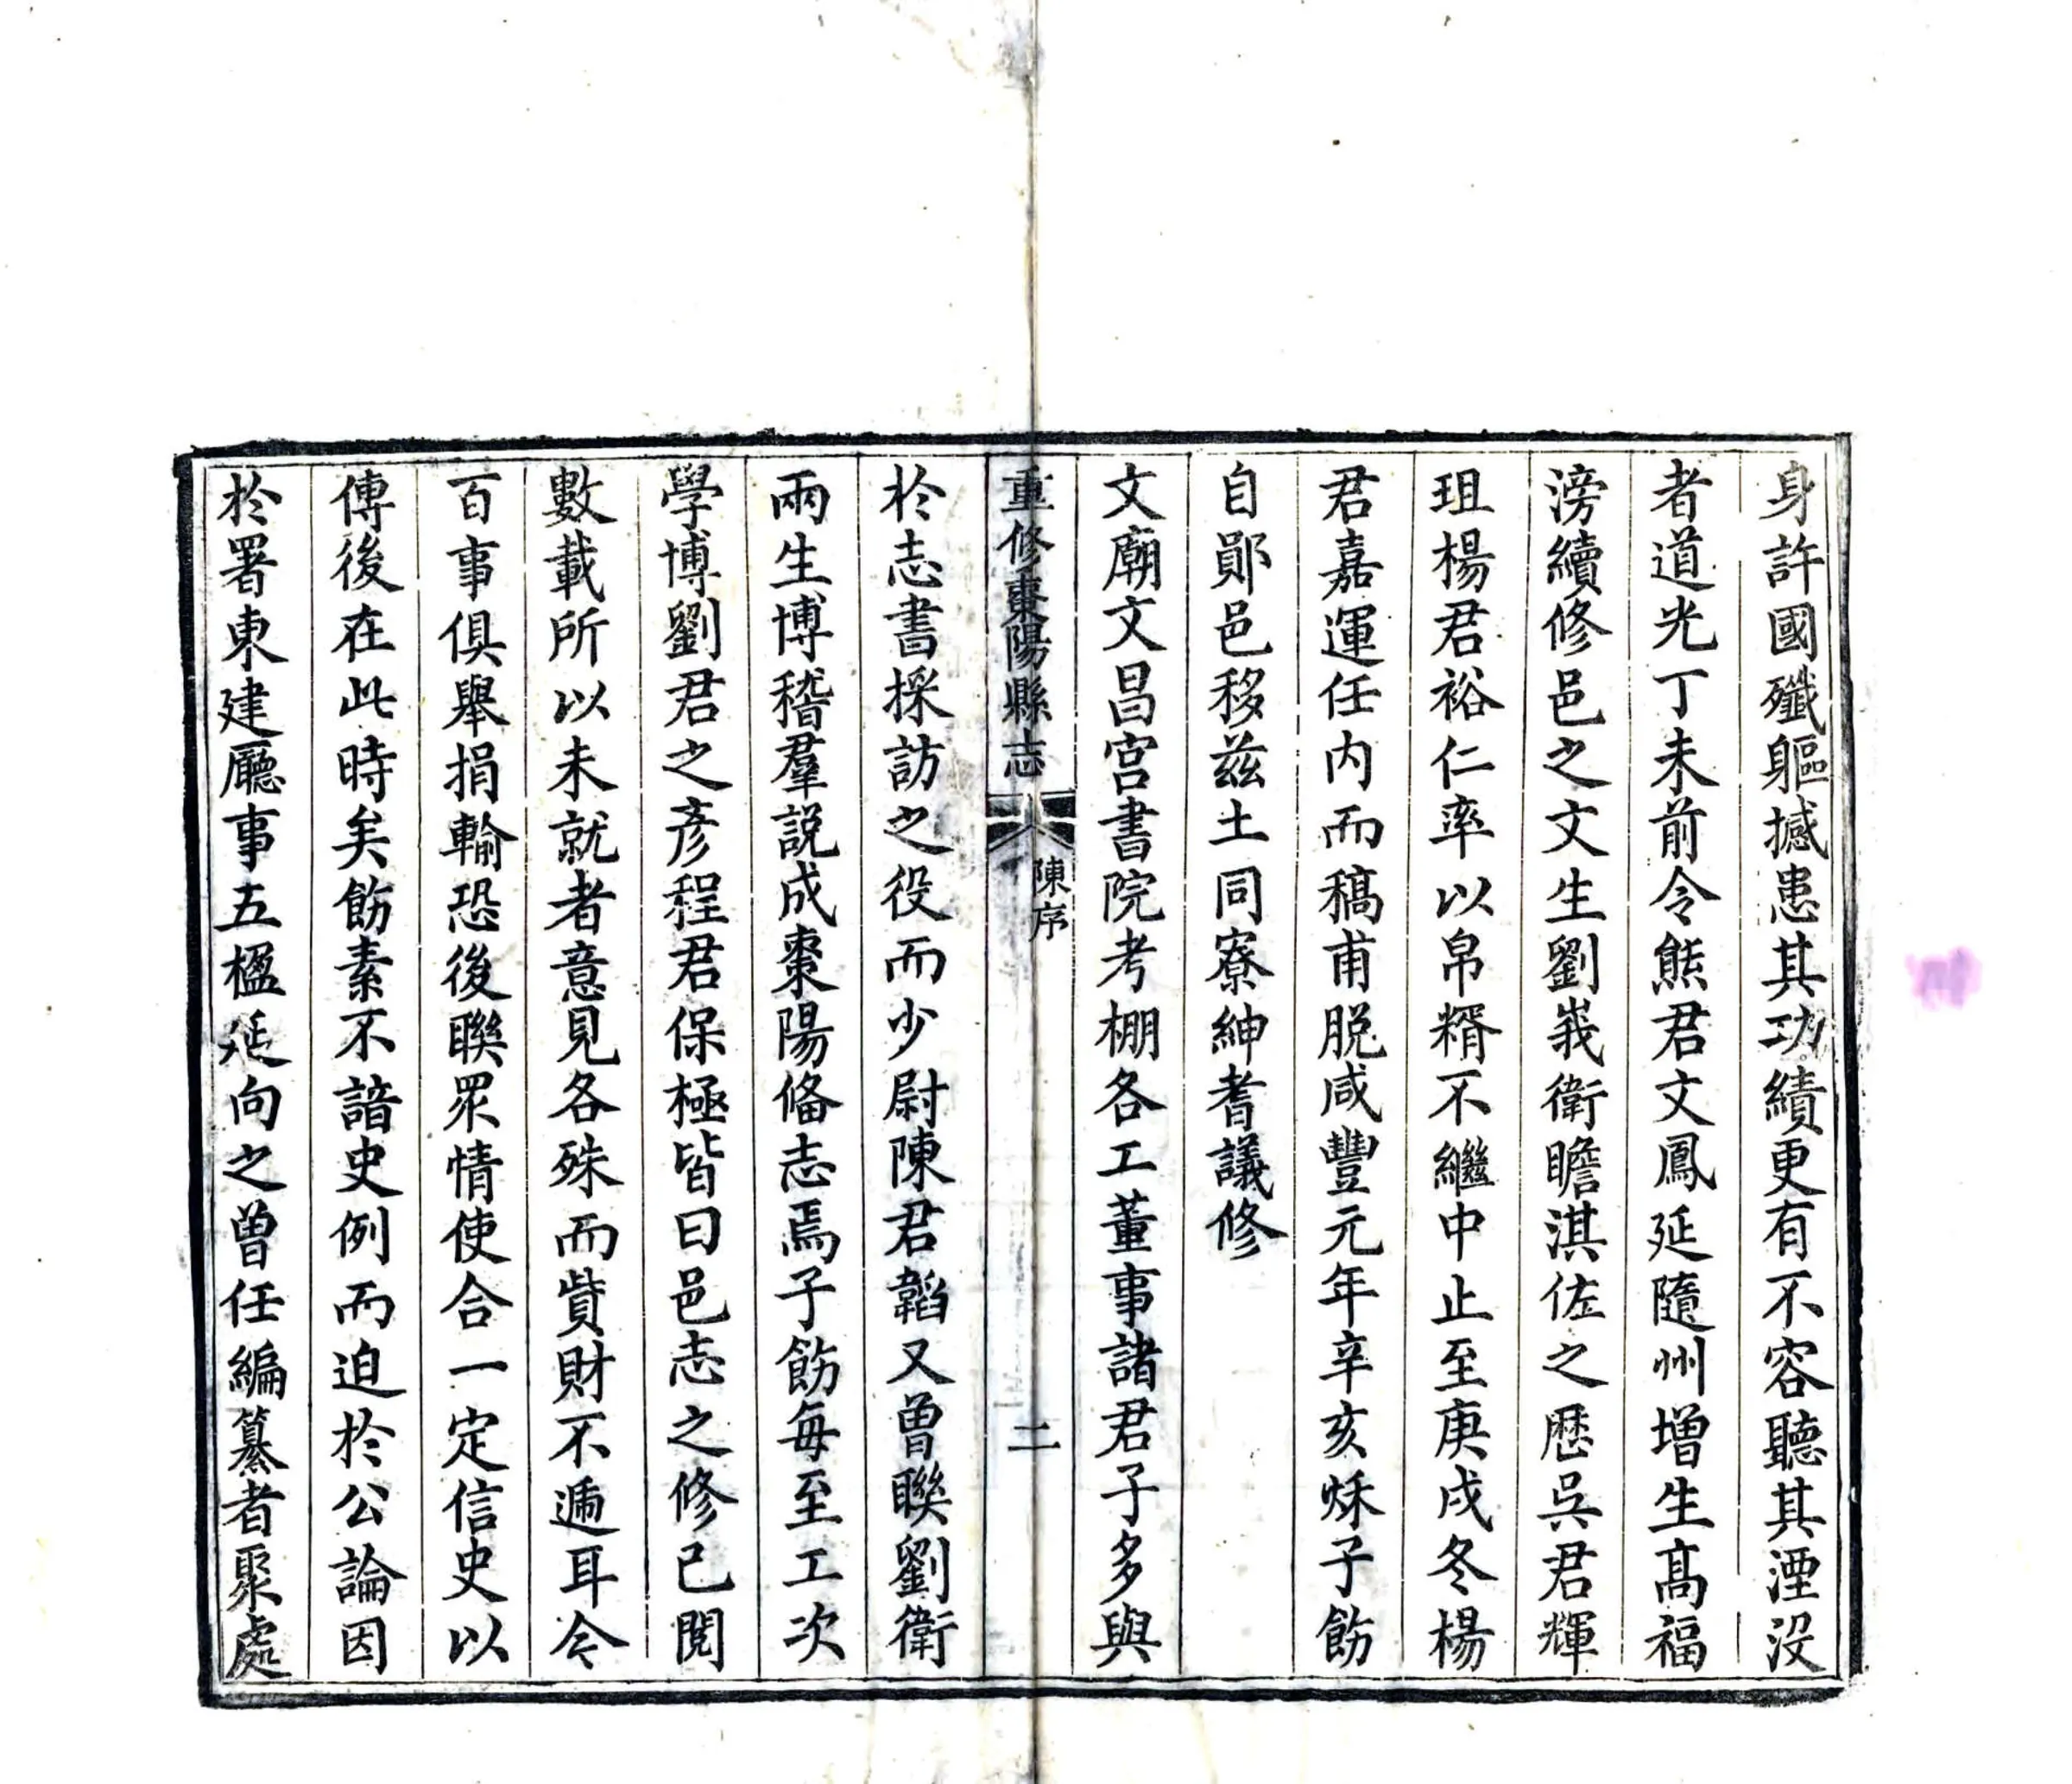 身許國殲軀撼患其功績更有不容聽其湮没
者道光丁未前令熊君文鳳延隨州增生髙福
滂續修邑之文生劉峩衛瞻淇佐之歷吳君輝
珇楊君裕仁率以帛糈不繼中止至庚戌冬楊
君嘉運任内而稿甫脱咸豐元年辛亥秌子飭
自鄖邑移兹土同寮紳耆議修
文廟文昌宫書院考棚各工董事諸君子多與
重修棗陽縣志
陳序
二
於志書採訪之役而少尉陳君韜又曽聯劉衛
兩生博稽羣説成棗陽俻志焉子飭每至工次
學博劉君之彥程君保極皆曰邑志之修已閲
數載所以未就者意見各殊而貲財不逓耳今
百事俱舉捐輸恐後聨眾情使合一定信史以
傳後在此時矣飭素不諳史例而迫於公論因
於署東建廳事五楹延向之曽任編纂者聚處